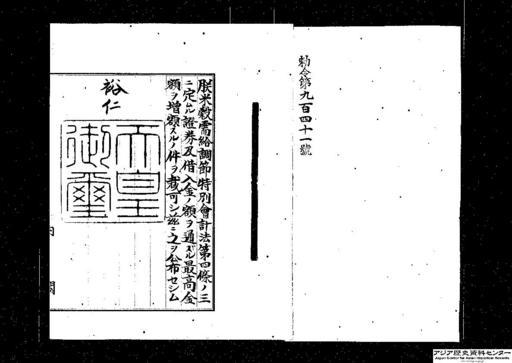 勅令第九百四十一號
朕米穀需給調節特別會計法第四條ノ三
ニ定ムル證券及借入金ノ額ヲ通ズル最高金
額ヲ増額スルノ件ヲ裁可シ茲ニ之ヲ公布セシム
裕仁
天皇
御璽
内閣
アジア歴史資料センター
Japan Center for Asian Historical Records